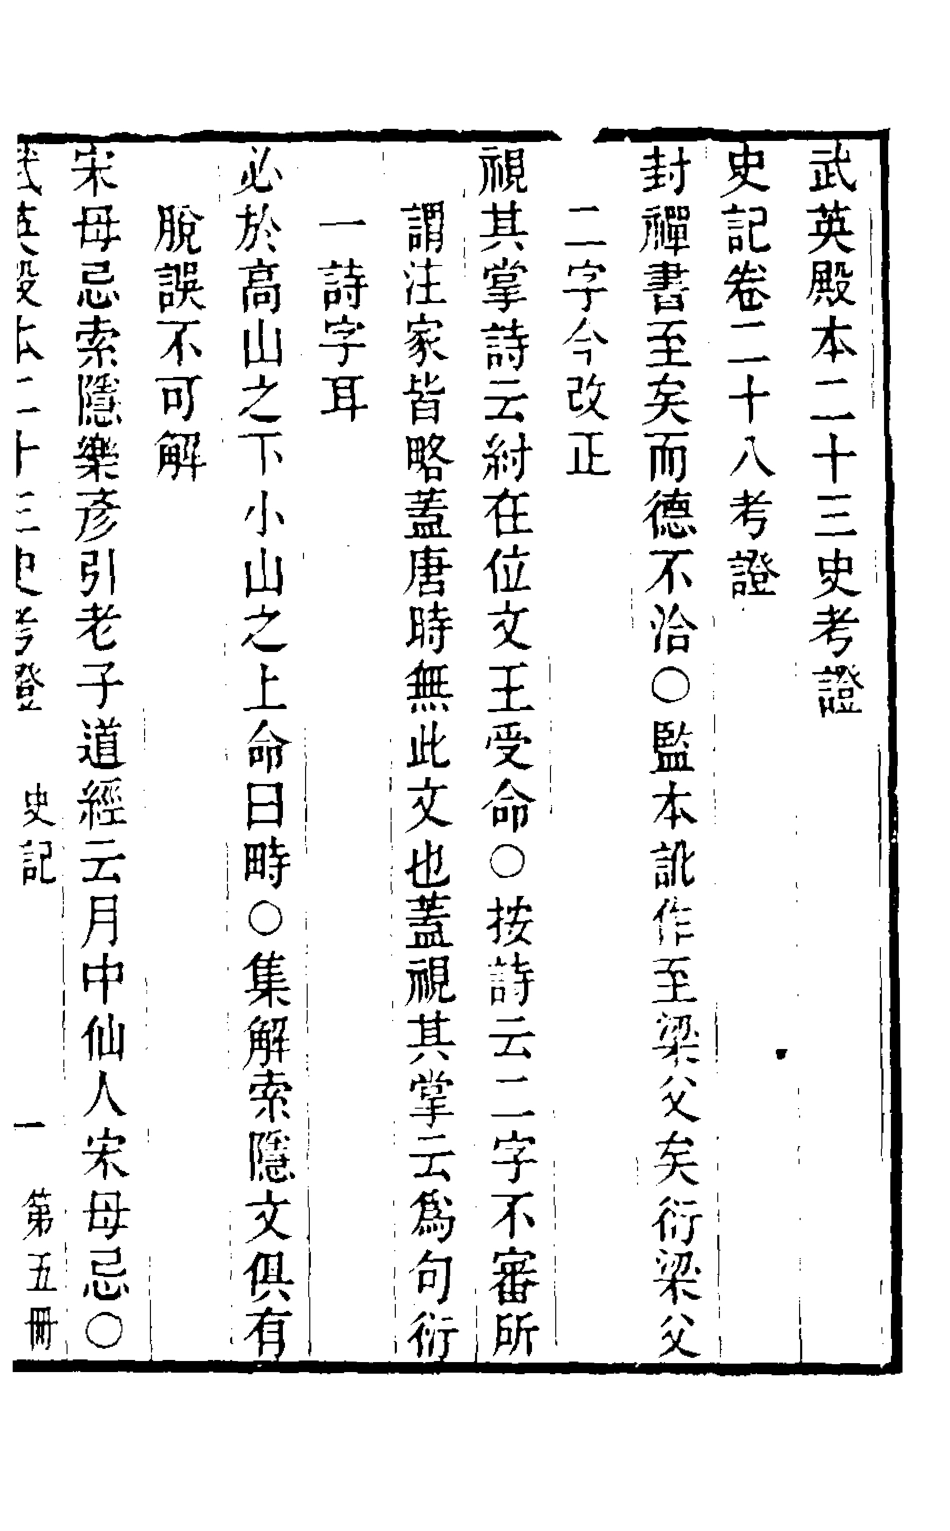 武英殿本二十三史考證
史記卷二十八考證
封禪書至矣而德不洽○監本訛作至梁父矣衍梁父
二字今改正
視其掌詩云紂在位文王受命○按詩云二字不審所
謂注家皆略蓋唐時無此文也蓋視其掌云爲句衍
一詩字耳
必於高山之下小山之上命曰畤○集解索隱文俱有
脫誤不可解
宋母忌索隱樂彥引老子道經云月中仙人宋母忌○
武英殿本二十三史考證 史記 一 第五冊